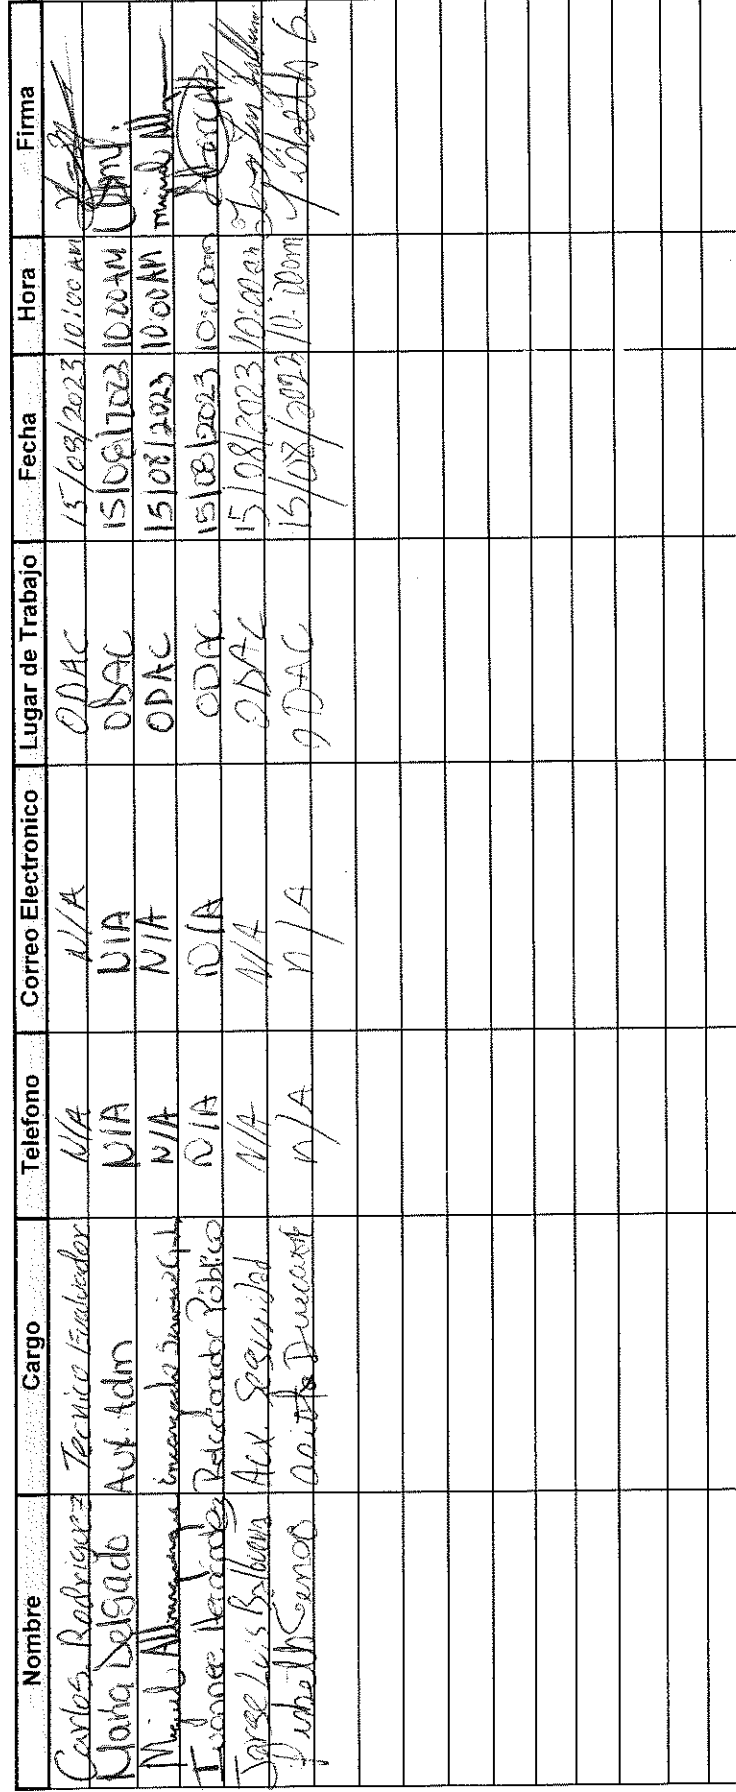 Nombre Cargo Telefono Correo Electronico Lugar de Trabajo Fecha Hora Firma
Carlos Rodriguez Tecnico Evaluador N/A N/A ODAC 15/08/2023 10:00 AM
Maria Delgado Aux. Adm N/A N/A ODAC 15/08/2023 10:00 AM
Miguel Alburquerque Encargado N/A N/A ODAC 15/08/2023 10:00 AM Miguel
Ivonnee Hernández Relacionador Público N/A N/A ODAC 15/08/2023 10:00am
Jorge Luis Balbuena Aux. Seguridad N/A N/A ODAC 15/08/2023 10:00am
n/A n/A ODAC 15/08/202 10:00m